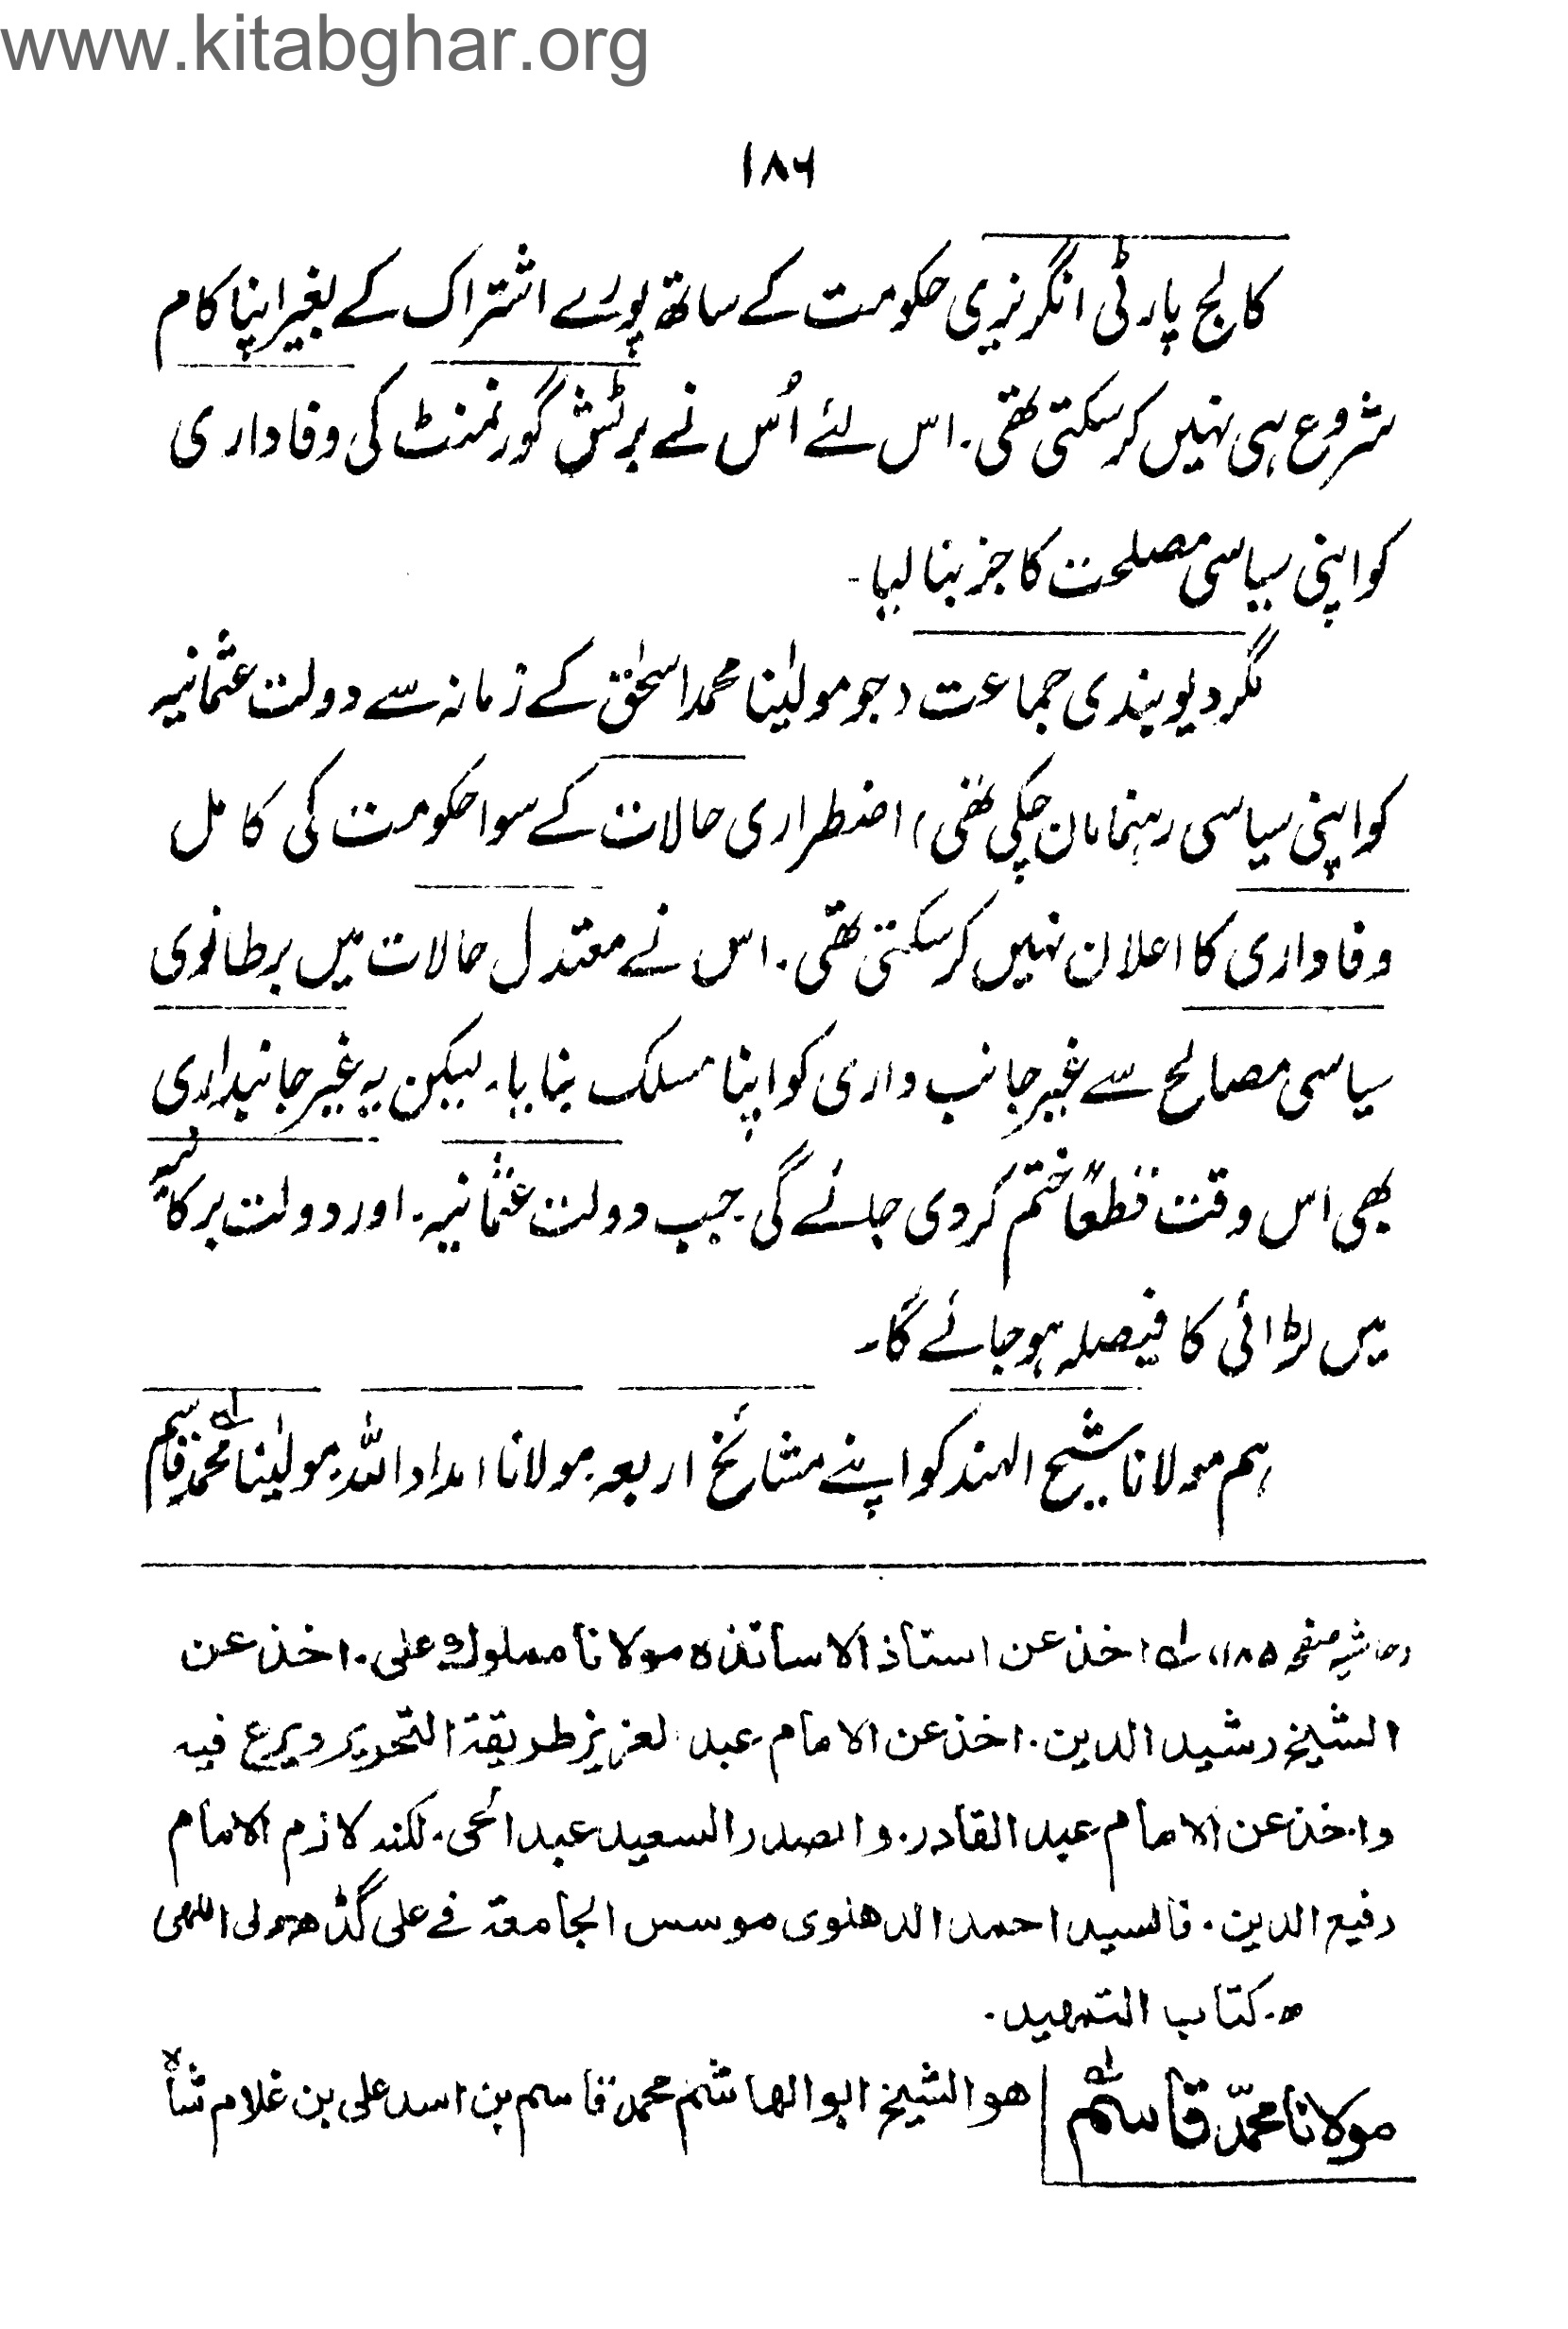 www.kitabghar.org
۱۸۶
کالج پارٹی انگریزی حکومت کے ساتھ پورے اشتراک کے بغیر اپنا کام
شروع ہی نہیں کرسکتی تھی۔ اس لئے اُس نے برٹش گورنمنٹ کی وفاداری
کو اپنی سیاسی مصلحت کا جز بنا لیا۔
مگر دیوبندی جماعت (جو مولیٰنا محمد اسحٰق کے زمانہ سے دولت عثمانیہ
کو اپنی سیاسی رہنما مان چکی تھی) اضطراری حالات کے سوا حکومت کی کامل
وفاداری کا اعلان نہیں کرسکتی تھی۔ اس نے معتدل حالات میں برطانوی
سیاسی مصالح سے غیر جانب داری کو اپنا مسلک بنایا۔ لیکن یہ غیر جانبداری
بھی اس وقت قطعاً ختم کردی جائے گی۔ جب دولت عثمانیہ۔ اور دولت برطانیہ
میں لڑائی کا فیصلہ ہو جائے گا۔
ہم مولانا شیخ الہند کو اپنے مشائخ اربعہ۔ مولانا امداد اللہ۔ مولیٰنا محمد قاسم
(حاشیہ صفحہ ۱۸۵) لہ اخذ عن استاذ الاساتذہ مولانا مملوک علی۔ اخذ عن
الشیخ رشید الدین۔ اخذ عن الامام عبد العزیز طریقۃ التحریر ویرع فیہ
واخذ عن الامام عبد القادر۔ والصدر السعید عبد الحی۔ لکنہ لازم الامام
رفیع الدین۔ فالسید احمد الدھلوی موسس الجامعۃ فے علی گڈھ ولی اللھی
ہ۔ کتاب التمھید۔
مولانا محمّد قاسم لہ ھو الشیخ ابو الھاشم محمد قاسم بن اسد علی بن غلام شاہ